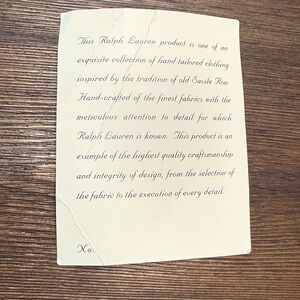 This Ralph Lauren product is one of an
exquisite collection of hand tailored clothing
inspired by the tradition of old Savile Row.
Hand-crafted of the finest fabrics with the
meticulous attention to detail for which
Ralph Lauren is known. This product is an
example of the highest quality craftsmanship
and integrity of design, from the selection of
the fabric to the execution of every detail.
No.